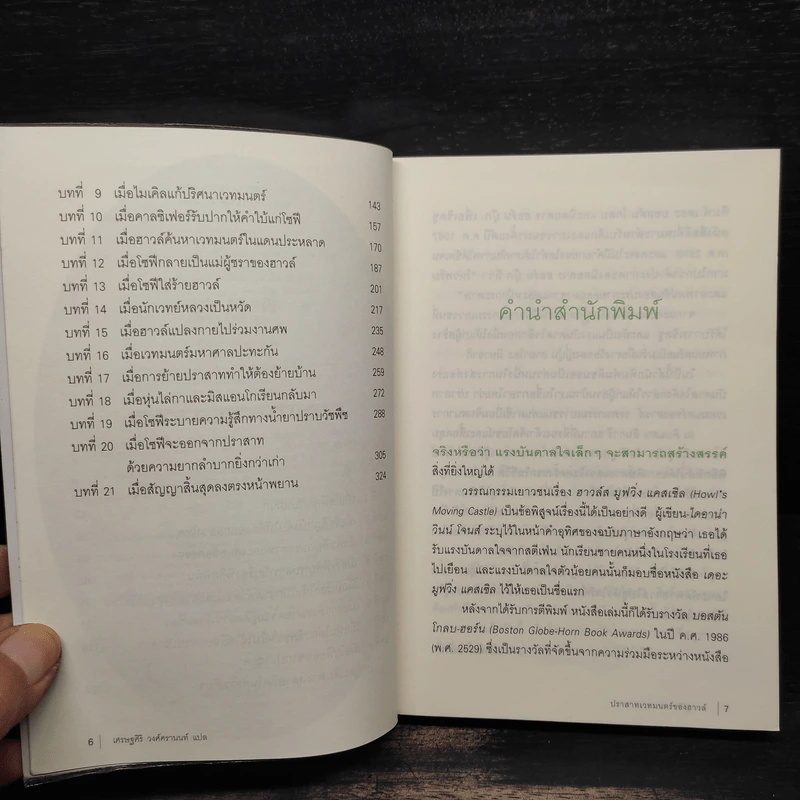 บทที่ 9 เมื่อไมเคิลแก้ปริศนาเวทมนตร์ 143
บทที่ 10 เมื่อคาลซิเฟอร์รับปากให้คำใบ้แก่โซฟี 157
บทที่ 11 เมื่อฮาวล์ค้นหาเวทมนตร์ในแดนประหลาด 170
บทที่ 12 เมื่อโซฟีกลายเป็นแม่ผู้ชราของฮาวล์ 187
บทที่ 13 เมื่อโซฟีใส่ร้ายฮาวล์ 201
บทที่ 14 เมื่อนักเวทย์หลวงเป็นหวัด 217
บทที่ 15 เมื่อฮาวล์แปลงกายไปร่วมงานศพ 235
บทที่ 16 เมื่อเวทมนตร์มหาศาลปะทะกัน 248
บทที่ 17 เมื่อการย้ายปราสาททำให้ต้องย้ายบ้าน 259
บทที่ 18 เมื่อหุ่นไล่กาและมิสแอนโกเรียนกลับมา 272
บทที่ 19 เมื่อโซฟีระบายความรู้สึกทางน้ำยาปราบวัชพืช 288
บทที่ 20 เมื่อโซฟีจะออกจากปราสาท
ด้วยความยากลำบากยิ่งกว่าเก่า 305
บทที่ 21 เมื่อสัญญาสิ้นสุดลงตรงหน้าพยาน 324
6 เศรษฐศิริ วงศ์ศรานนท์ แปล
คำนำสำนักพิมพ์
จริงหรือว่า แรงบันดาลใจเล็กๆ จะสามารถสร้างสรรค์
สิ่งที่ยิ่งใหญ่ได้
วรรณกรรมเยาวชนเรื่อง ฮาวล์ส มูฟวิ่ง แคสเซิล (Howl's
Moving Castle) เป็นข้อพิสูจน์เรื่องนี้ได้เป็นอย่างดี ผู้เขียน-ไดอาน่า
วินน์ โจนส์ ระบุไว้ในหน้าคำอุทิศของฉบับภาษาอังกฤษว่า เธอได้
รับแรงบันดาลใจจากสตีเฟ่น นักเรียนชายคนหนึ่งในโรงเรียนที่เธอ
ไปเยือน และแรงบันดาลใจตัวน้อยคนนั้นก็มอบชื่อหนังสือ เดอะ
มูฟวิ่ง แคสเซิล ไว้ให้เธอเป็นชื่อแรก
หลังจากได้รับการตีพิมพ์ หนังสือเล่มนี้ก็ได้รับรางวัล บอสตัน
โกลบ-ฮอร์น (Boston Globe-Horn Book Awards) ในปี ค.ศ. 1986
(พ.ศ. 2529) ซึ่งเป็นรางวัลที่จัดขึ้นจากความร่วมมือระหว่างหนังสือ
ปราสาทเวทมนตร์ของฮาวล์ 7